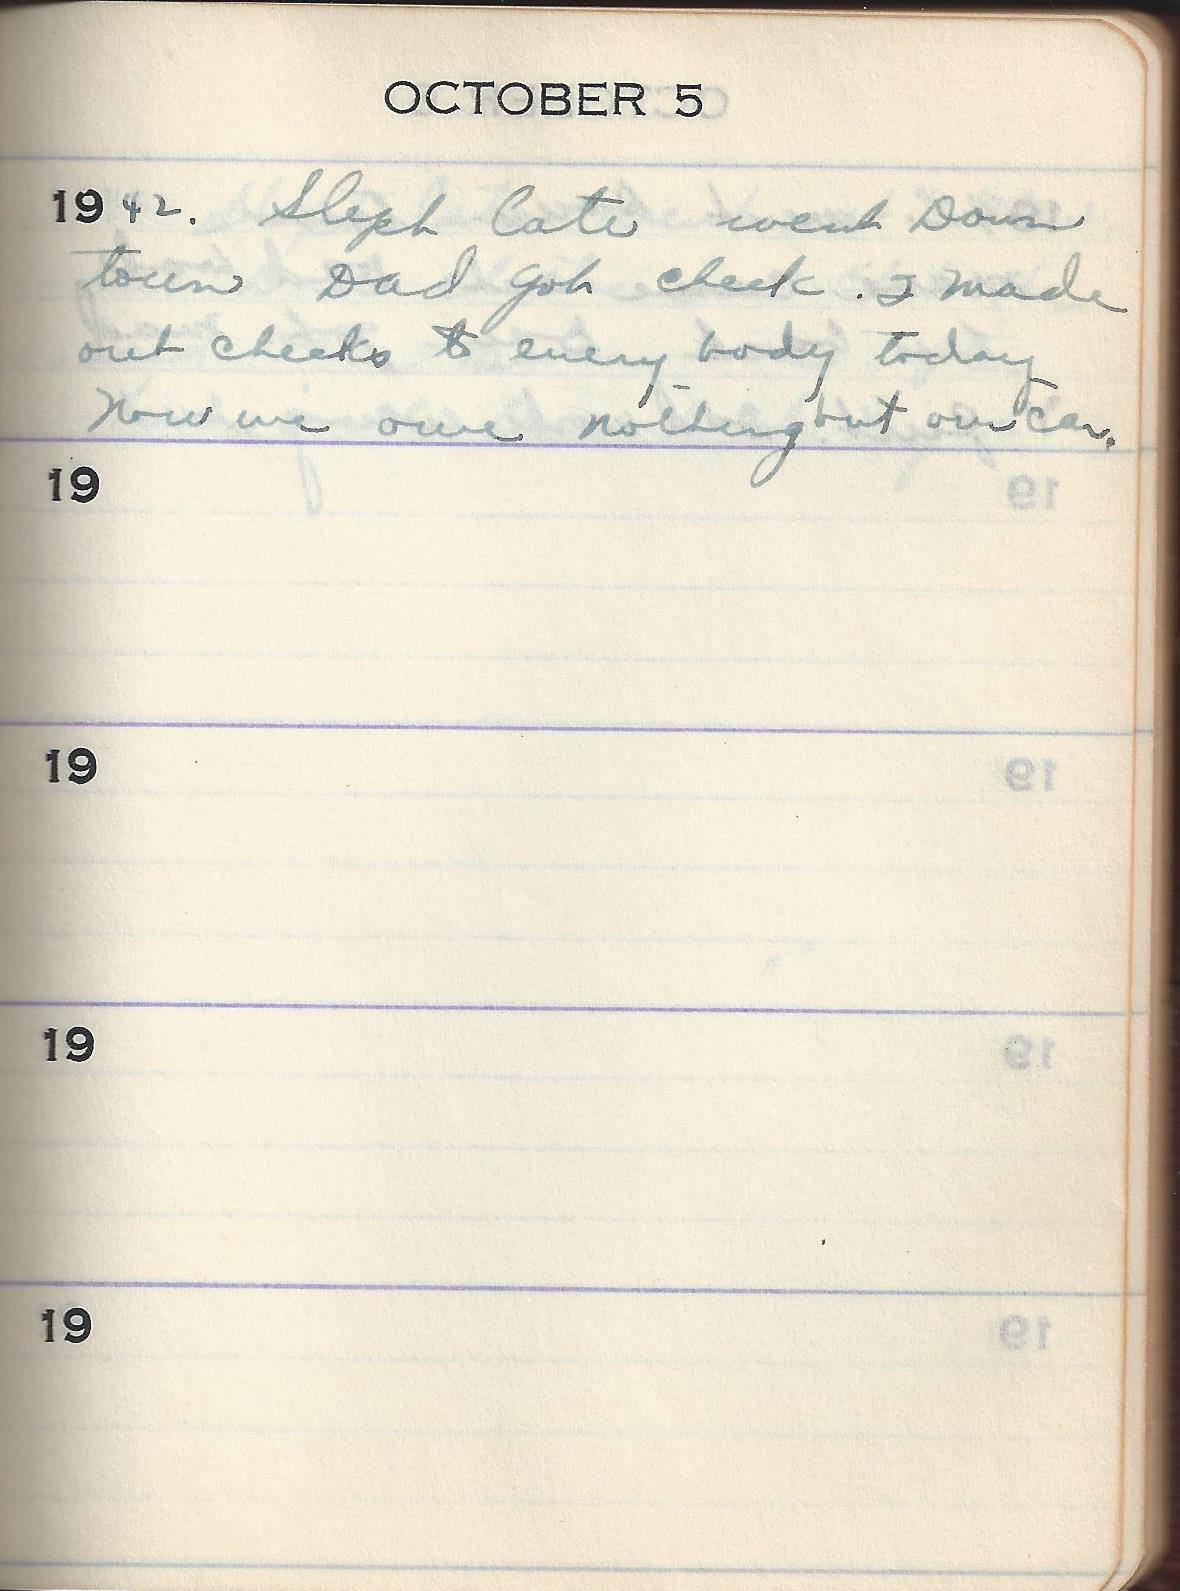 OCTOBER 5
1942. Sleph late went Down
town Dad goh check. I made
out checks to every body today
Now we owe nothing but our car.
19
19
19
19